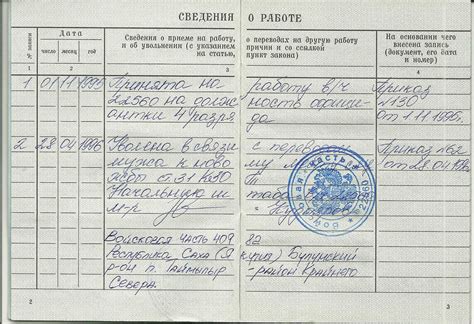 СВЕДЕНИЯ О РАБОТЕ
№ записи Дата Сведения о приеме на работу, о переводах на другую работу и об увольнении (с указанием причин и со ссылкой на статью, пункт закона) На основании чего внесена запись (документ, его дата и номер)
число месяц год
1 2 3 4
1 01 11 1995 Принята на работу в/ч Приказ
22560 на должность официантки №130
4 разряда от 1.11.1995г.
2 28 04 1996 Уволена в связи с переводом Приказ №62
мужа к новому от 28.04.
ст. 31 КЗоТ
Начальник штаба
м-р
Войсковая часть 40982
Республика Саха (Якутия) Булунский
р-он п. Таймылыр район Крайнего
Севера.
2 3